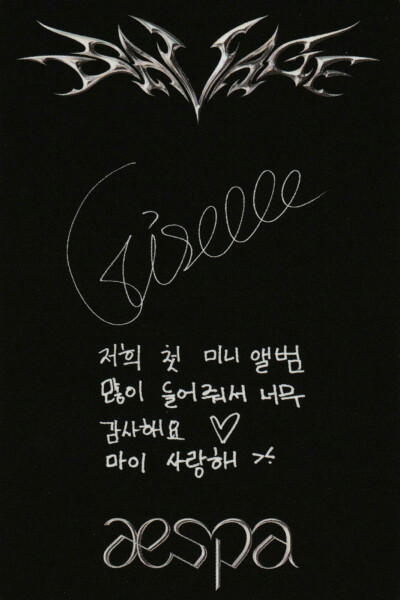 SAVAGE
Giselle
저희 첫 미니 앨범
많이 들어줘서 너무
감사해요 ♡
마이 사랑해 >.<
aespa